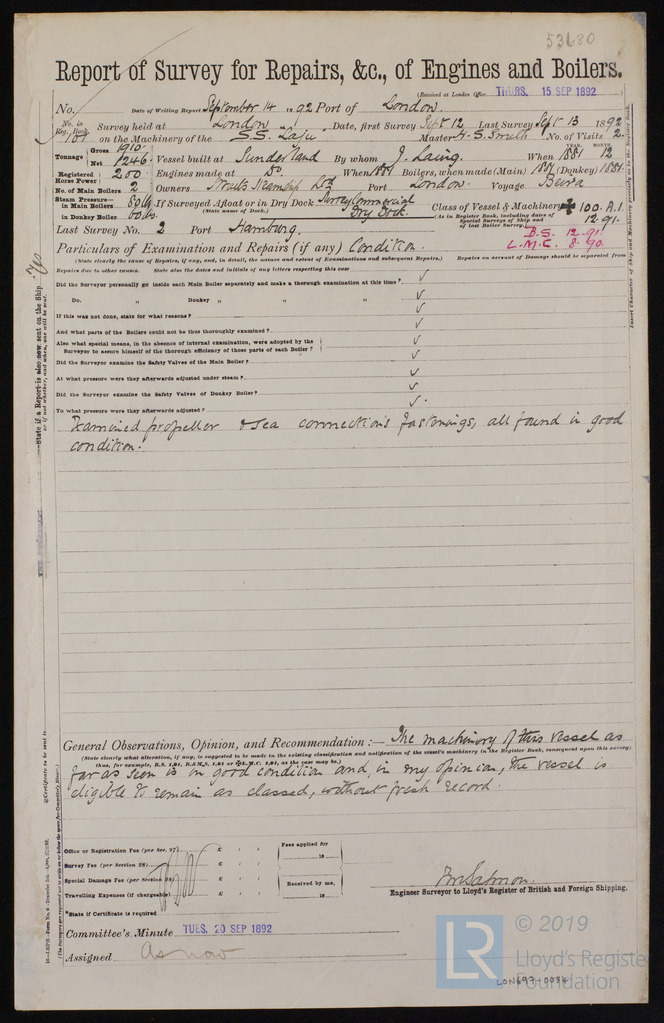 53680
Report of Survey for Repairs, &c., of Engines and Boilers.
(Received at London Office THURS. 15 SEP 1892
No. Date of Writing Report September 14 1892 Port of London.
No. in Reg. Book 101 Survey held at London Date, first Survey Sept 12 Last Survey Sept 13 1892
on the Machinery of the S.S. Master S. Smith No. of Visits 2.
Tonnage Gross 1910 Net 1246 Vessel built at Sunderland By whom J. Laing. When YEAR. 1881 MONTH 12
Registered Horse Power 200 Engines made at Do. When 1881 Boilers, when made (Main) 1881 (Donkey) 1881
No. of Main Boilers 2 Owners Steamship Port London. Voyage Beira
Steam Pressure— in Main Boilers 80 lbs If Surveyed Afloat or in Dry Dock Surrey Commercial Dry Dock. Class of Vessel & Machinery ✠ 100.A.1.
(State name of Dock.)
in Donkey Boiler 60 lbs (As in Register Book, including dates of Special Surveys of Ship and of last Boiler Survey.) 12.91.
Last Survey No. 2 Port Hamburg. B.S. 12.91
L.M.C. 8.90
Particulars of Examination and Repairs (if any) Condition.
(State clearly the cause of Repairs, if any, and, in detail, the nature and extent of Examinations and subsequent Repairs.) Repairs on account of Damage should be separated from
Repairs due to other causes. State also the dates and initials of any letters respecting this case
Did the Surveyor personally go inside each Main Boiler separately and make a thorough examination at this time? ✓
Do. „ Donkey „ „ „ ✓
If this was not done, state for what reasons? ✓
And what parts of the Boilers could not be thus thoroughly examined? ✓
Also what special means, in the absence of internal examination, were adopted by the Surveyor to assure himself of the thorough efficiency of those parts of each Boiler? ✓
Did the Surveyor examine the Safety Valves of the Main Boiler? ✓
At what pressure were they afterwards adjusted under steam? ✓
Did the Surveyor examine the Safety Valves of Donkey Boiler? ✓
To what pressure were they afterwards adjusted? ✓
Examined propeller & sea connections fastenings, all found in good
condition.
General Observations, Opinion, and Recommendation:— The machinery of this vessel as
(State clearly what alteration, if any, is suggested to be made in the existing classification and notification of the vessel's machinery in the Register Book, consequent upon this survey:
thus, for example, B.S. 1.91, B.&M.S. 1.91, or ✠L.M.C. 1.91, as the case may be.)
far as seen is in good condition and, in my opinion, the vessel is
eligible to remain as classed, without fresh record.
Office or Registration Fee (per Sec. 27) £ : : Fees applied for
Survey Fee (per Section 28) £ : : 18
Special Damage Fee (per Section 28) £ : : Received by me,
Travelling Expenses (if chargeable) £ : : 18
Engineer Surveyor to Lloyd's Register of British and Foreign Shipping.
*State if Certificate is required
Committee's Minute TUES. 20 SEP 1892
Assigned As now
© 2019
LR Lloyd's Register
Foundation
LON697-0084
State if a Report is also now sent on the Ship Yes